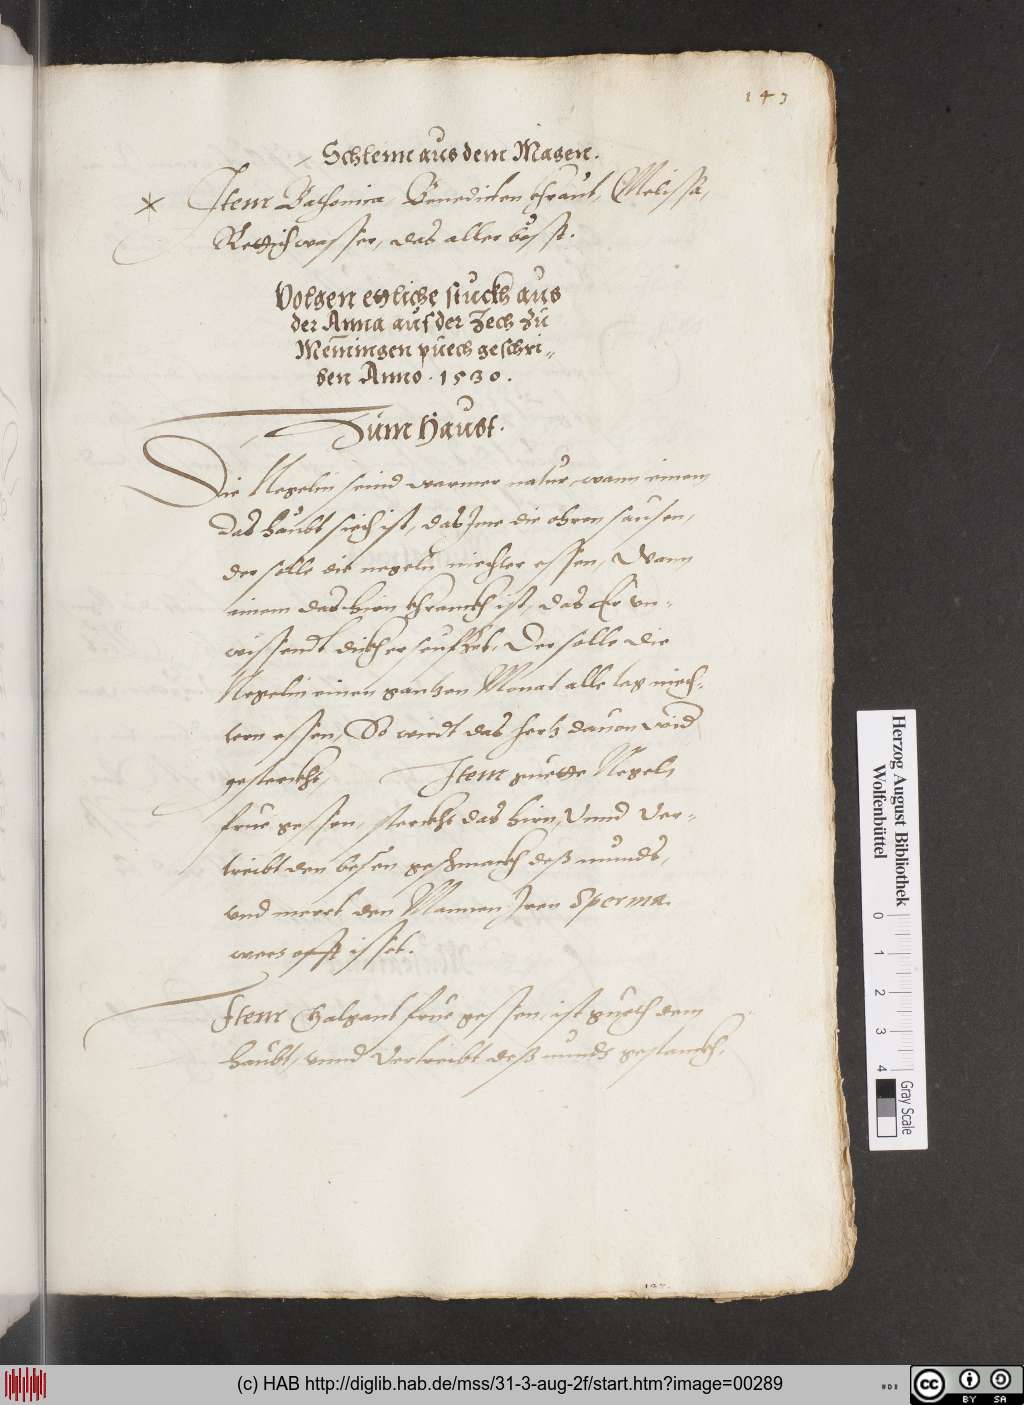 143
Schleim aus dem Magen.
Item Bathonica, Benedicten khraut, Melissa,
Rettich wasser, das aller böst.
Volgen etliche stuckh aus
der Anna auf der Zech zu
Memingen puech geschri-
ben Anno. 1530.
Zum Haubt.
Die Negelin seind warmer natur, wann einem
das haubt siech ist, das Ime die ohren sausen,
der solle die negelin niechter essen, Wann
einem das hirn khranckh ist, das Er vn-
wissendt dickher seufftzet, Der solle die
Negelin einen gantzen Monat alle tag niech-
tern essen, So wirdt das hertz dauon wid
gesterckht, Item guette Negeli
frue gessen, sterckht das hirn, Vnnd Ver-
treibt den besen geschmackh deß munds,
vnd meert den Mannen Iren Sperma.
wers offt isset.
Item Galgant frue gessen, ist gueth dem
haubt, vnnd Vertreibt deß munds gestanckh.
Herzog August Bibliothek
Wolfenbüttel
0 1 2 3 4
Gray Scale
(c) HAB http://diglib.hab.de/mss/31-3-aug-2f/start.htm?image=00289
cc BY SA